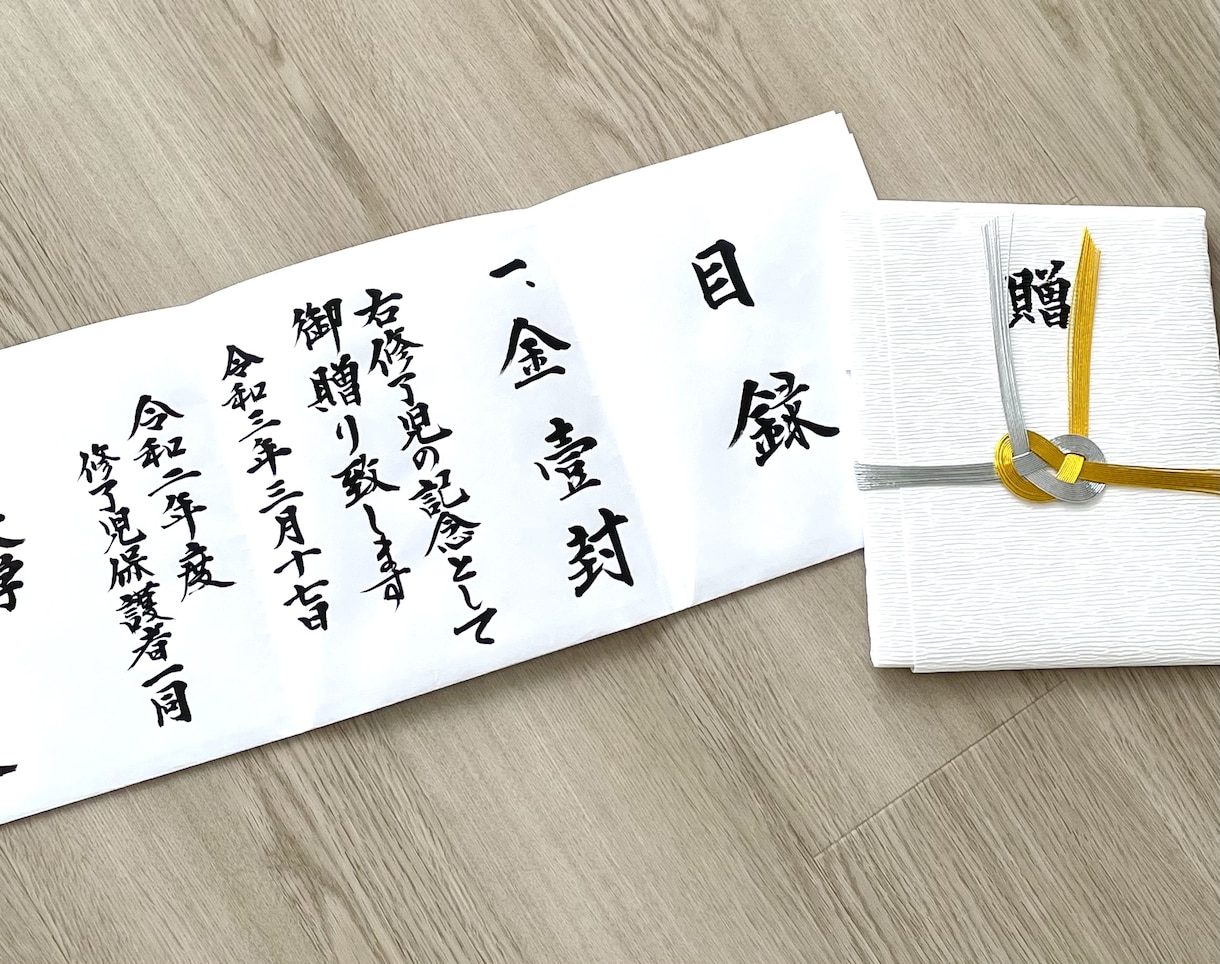 贈
目録
一、金壹封
右修了児の記念として
御贈り致します
令和三年三月十七日
令和二年度
修了児保護者一同